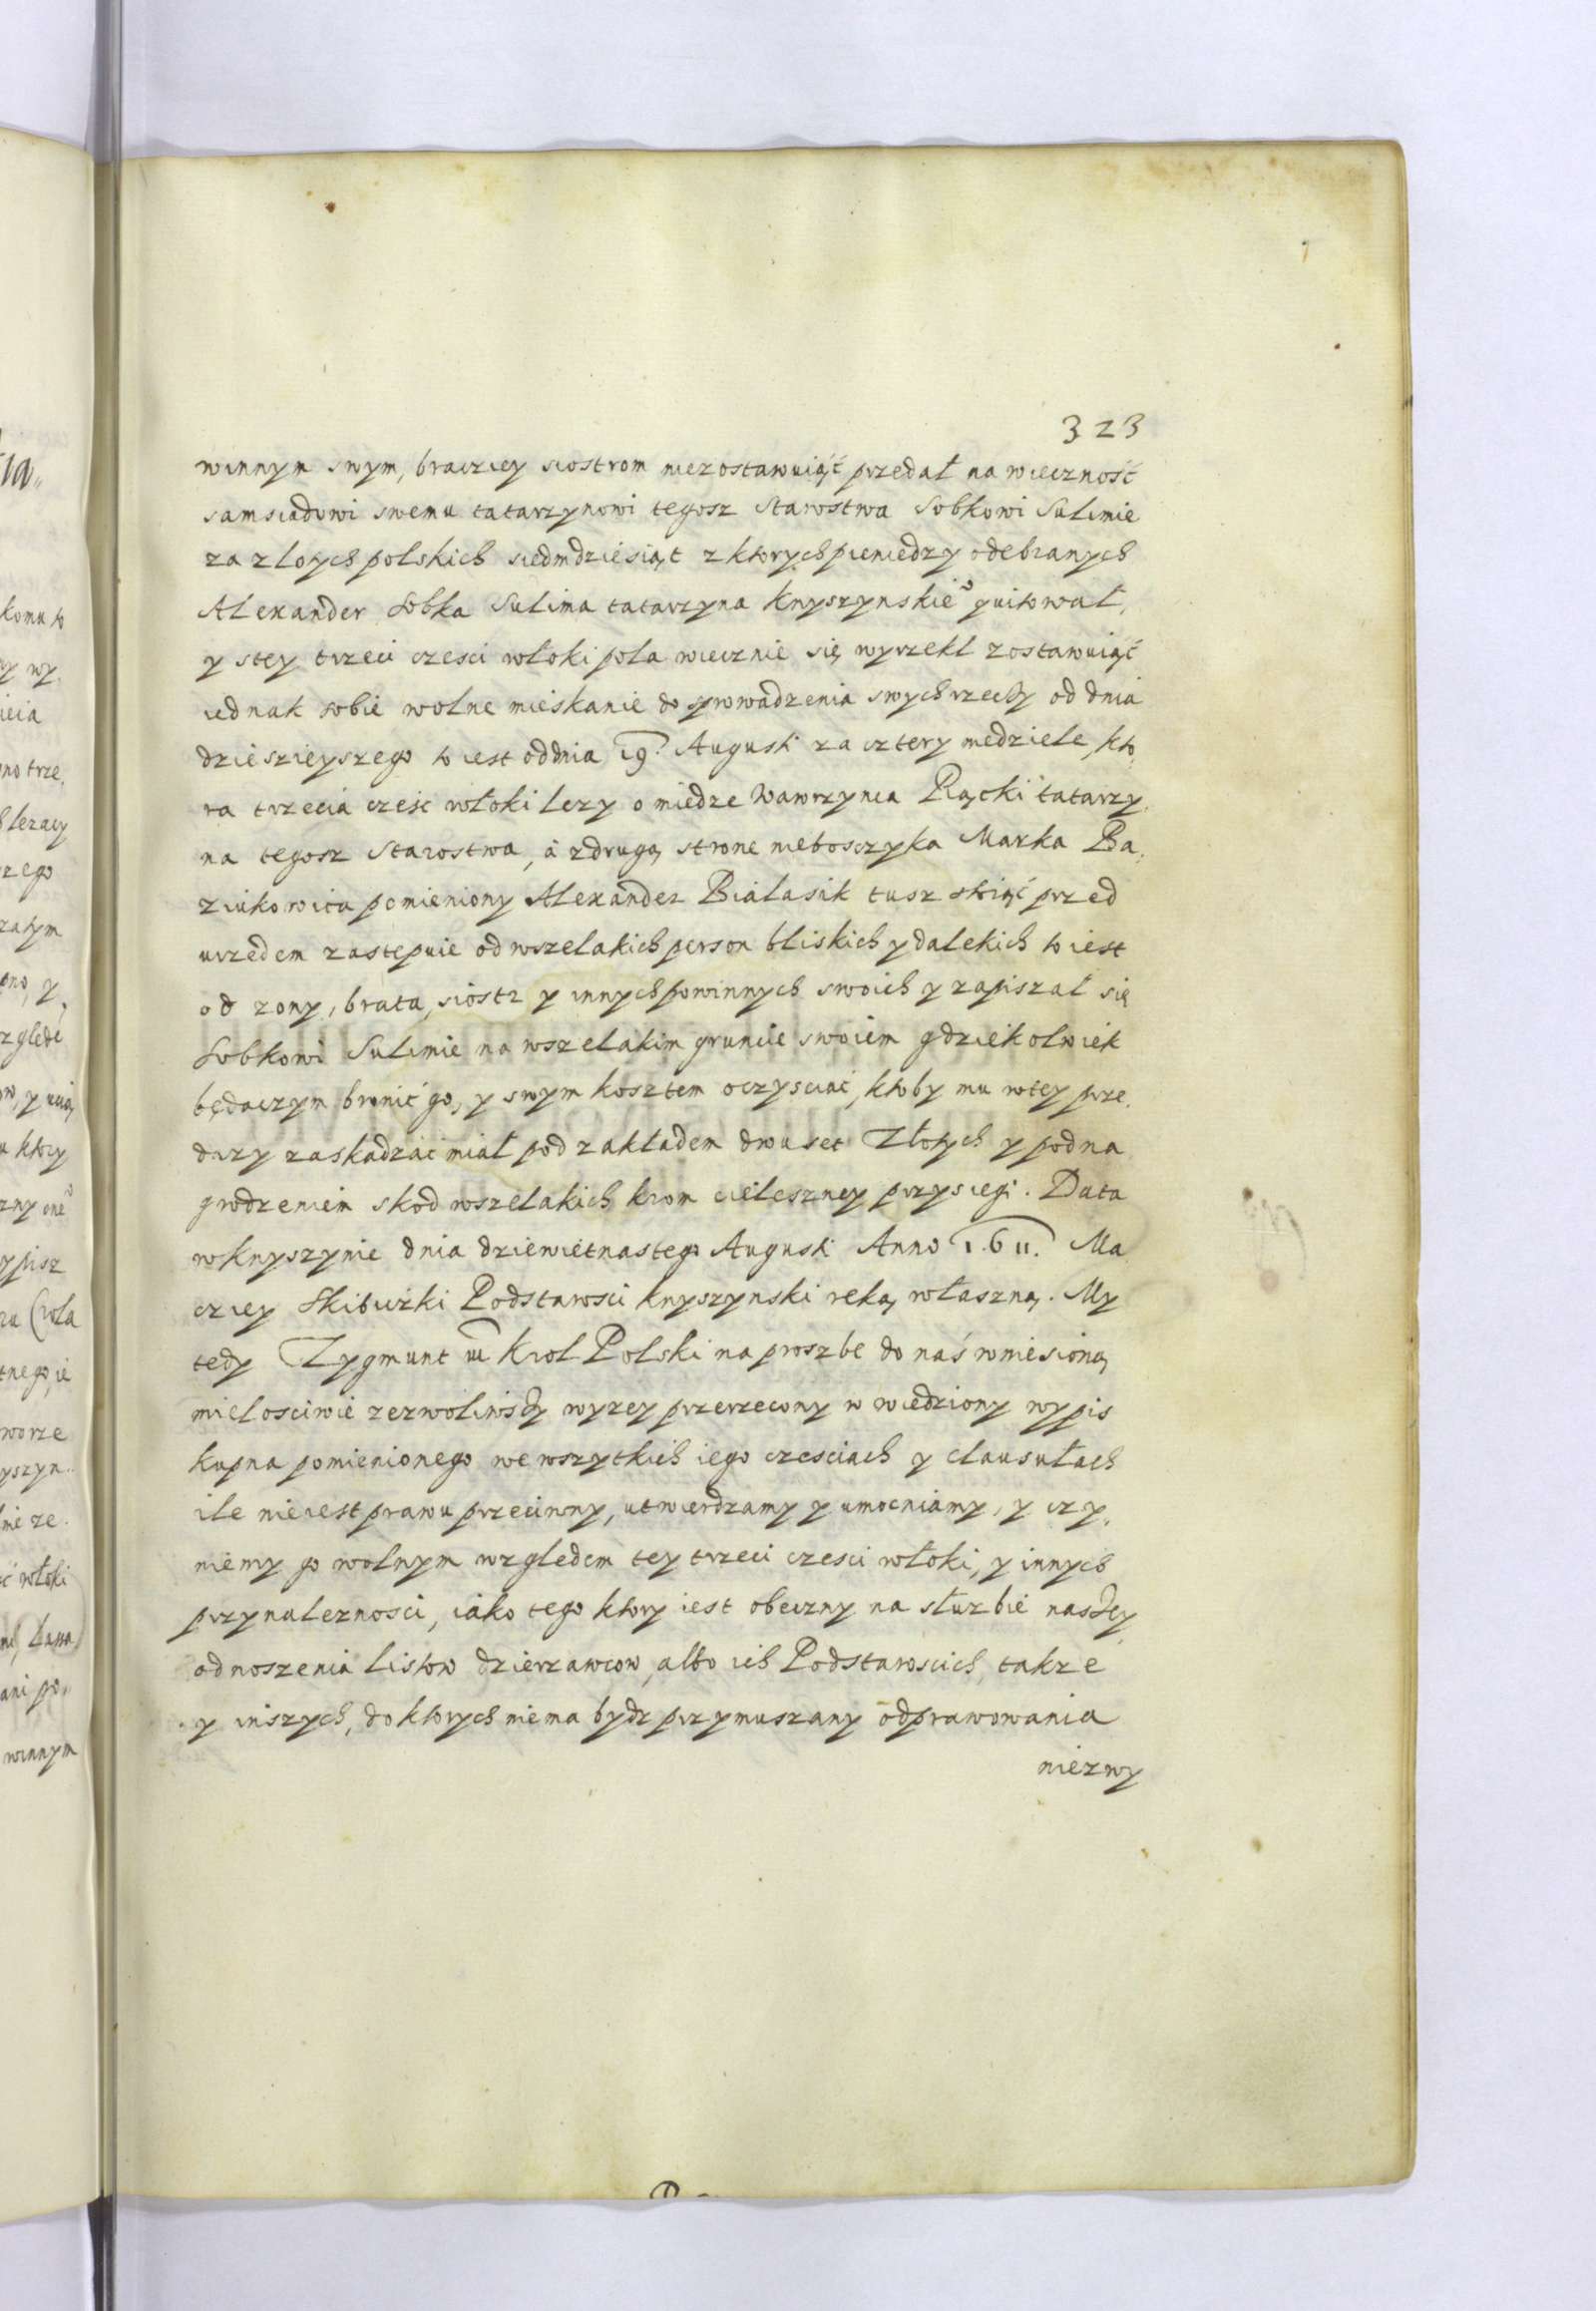 323
winnym swym, braciey siostrom niezostawuiąć przedał na wieczność
samsiadowi swemu tatarzynowi tegosz Starostwa Sobkowi Sulimie
za zlotych polskich siedmdziesiąt z ktorych pieniedzy odebranych
Alexander Sobka Sulima tatarzyna Knyszynskie⁰ quitował,
y stey trzeci czesci włoki pola wiecznie się wyrzekl zostawuiąć
iednak sobie wolne mieskanie do sprowadzenia swych rzeczy od dnia
dzieszieyszego to iest od dnia 19. Augusti za cztery niedziele, kto
ra trzecia cześc włoki lezy o miedze Wawrzynca Piącki tatarzy
na tegosz Starostwa, à zdrugą strone niebosczyka Marka Ba,
ziukowica pomieniony Alexander Bialasik tusz stoiąć przed
urzedem zastepuie od wszelakich person bliskich y dalekich to iest
od zony, brata, siostr y innych powinnych swoich y zapiszał się
Sobkowi Sulimie na wszelakim gruncie swoiem gdziekolwiek
będaczym bronić go, y swym kosztem oczysciać, ktoby mu wtey prze,
dazy zaskadzać miał pod zakładem dwuset Złotych y pod na
grodzeniem skod wszelakich krom cieleszney przysiegi. Data
w Knyszynie dnia dziewietnastego Augusti Anno 1.611. Ma
cziey Skibicki Podstarosci Knyszynski reką własзną. My
tedy Zygmunt III Krol Polski na proszbe do naś wniesioną
mielosciwie zezwoliwszy wyzey przerzeczony w wiedziony wypis
kupna pomienionego we wszytkich iego czesciach y clausułach
ile nieiest prawu przeciwny, utwierdzamy y umocniamy, y czy,
niemy go wolnym wzgledem tey trzeci czesci włoki, y innych
przynaleznosci, iako tego ktory iest obeczny na słuzbie naszey,
odnoszenia listow dzierzawcow, albo ich Podstaroscich, takze
y inszych, do ktorych niema bydz przymuszany odprawowania
niezwy